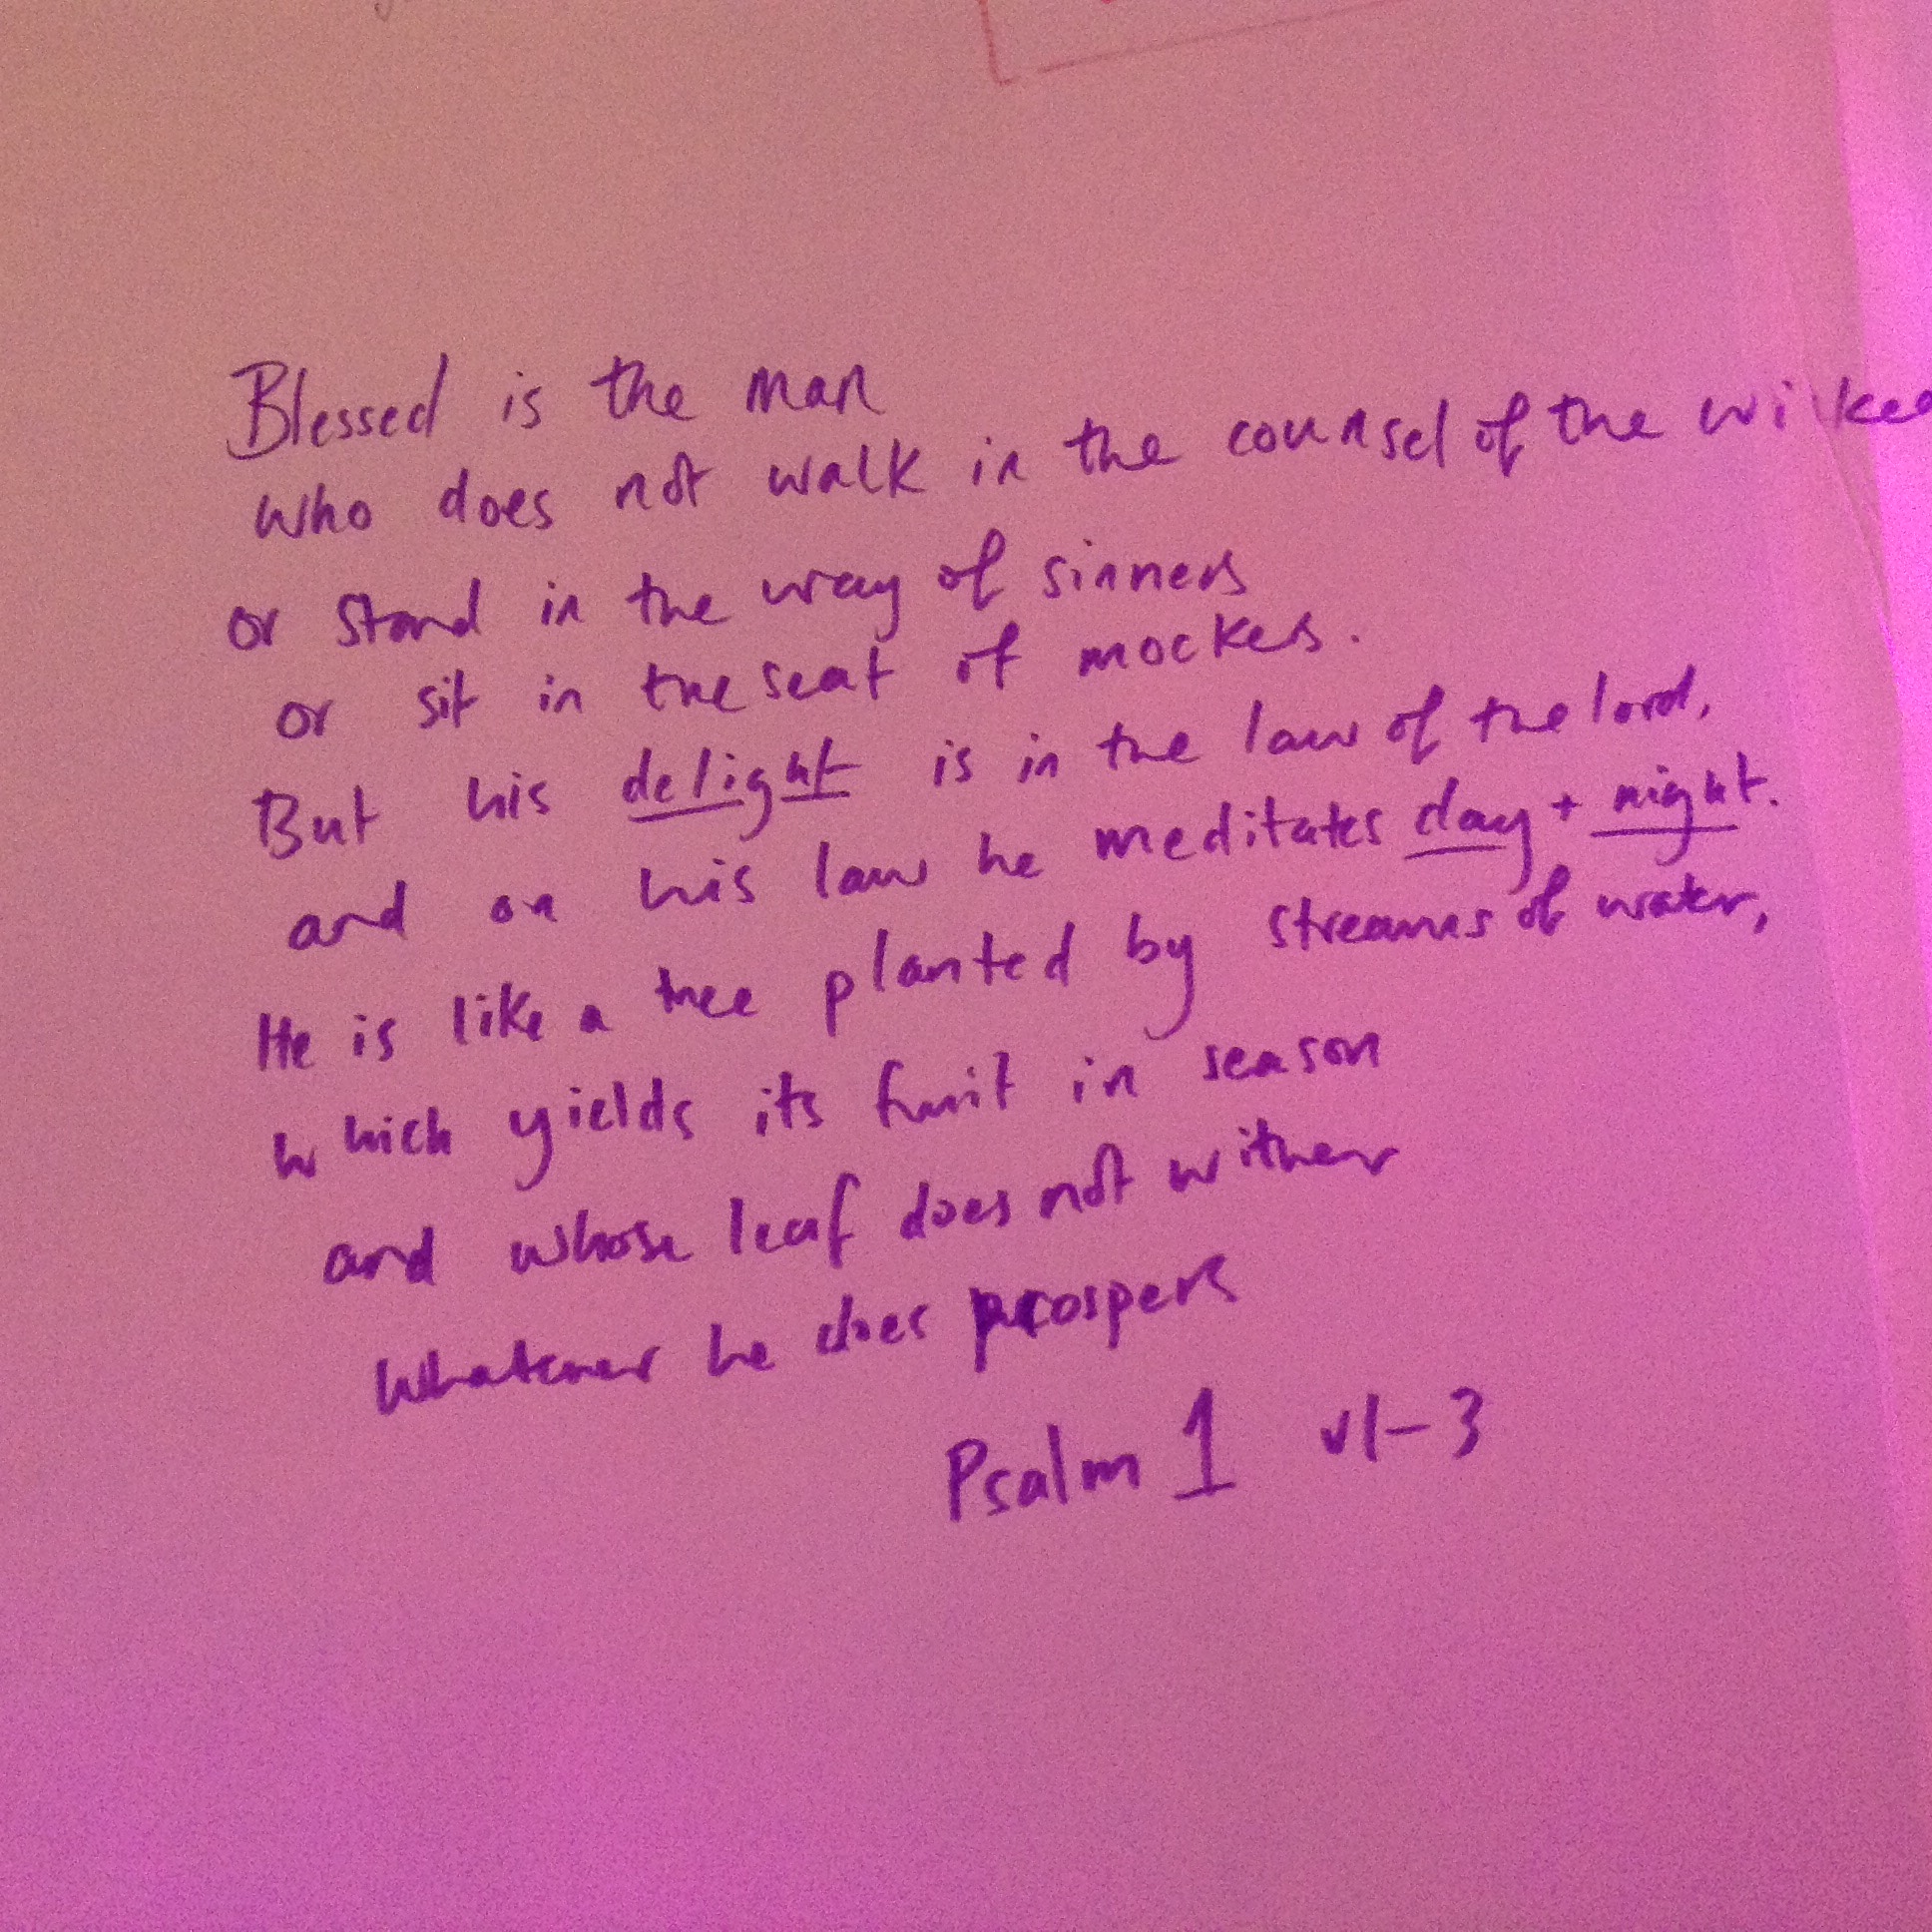 Blessed is the man
who does not walk in the counsel of the wi ked
or stand in the way of sinners
or sit in the seat of mockers.
But his delight is in the law of the lord,
and on his law he meditates day + night.
He is like a tree planted by streams of water,
which yields its fruit in season
and whose leaf does not wither
whatever he does prospers
Psalm 1 v1-3